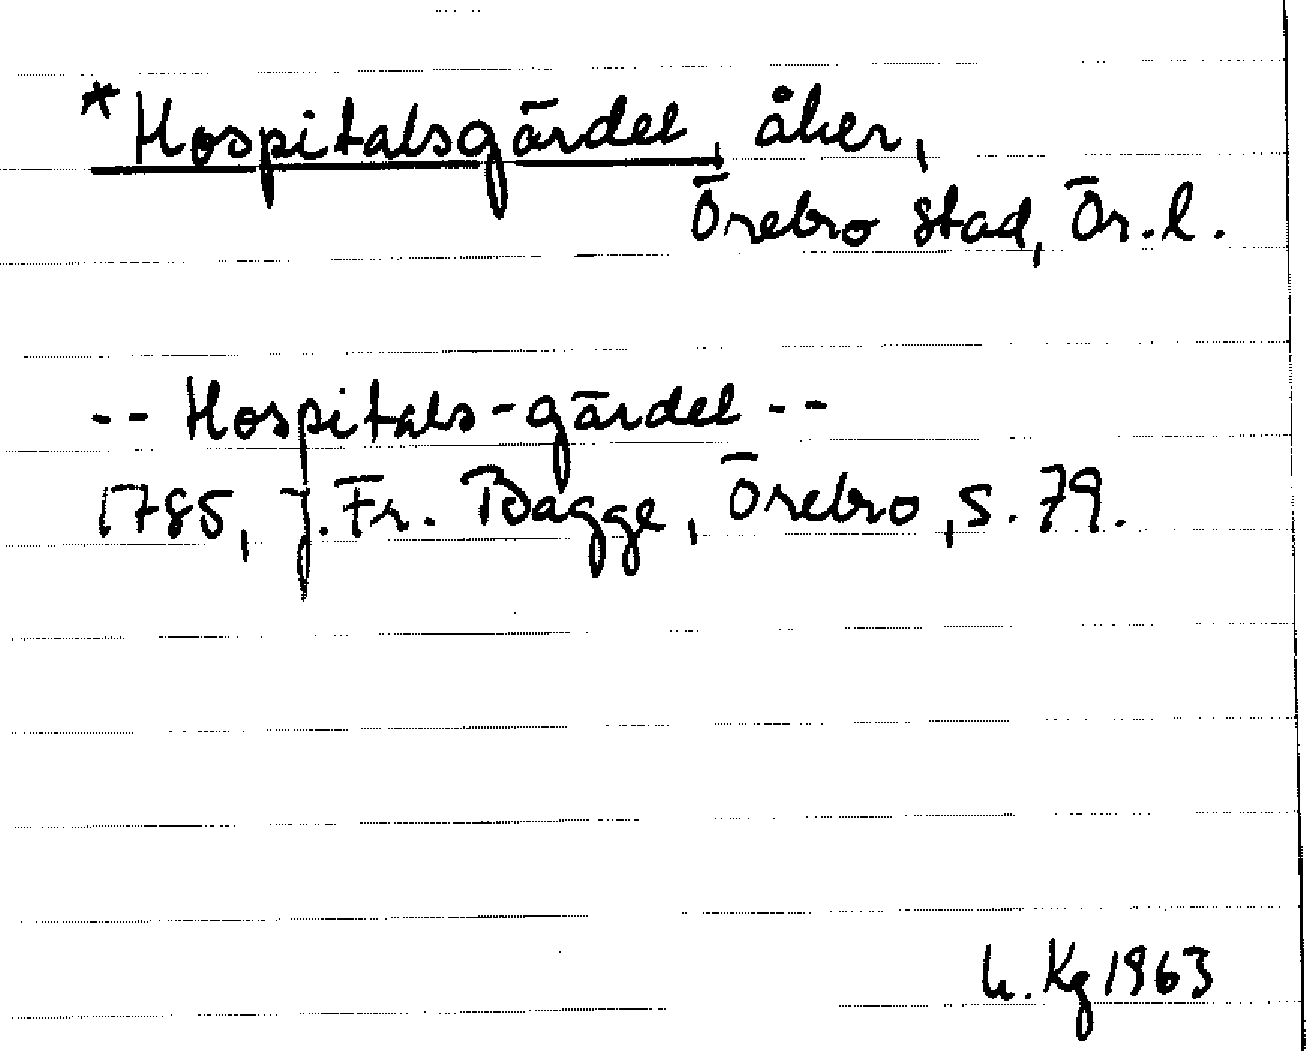 *Hospitalsgärdet, åker,
Örebro stad, Ör.l.
-- Hospitals-gärdet --
1785, J. Fr. Bagge, Örebro, s. 79.
U. Kg 1963